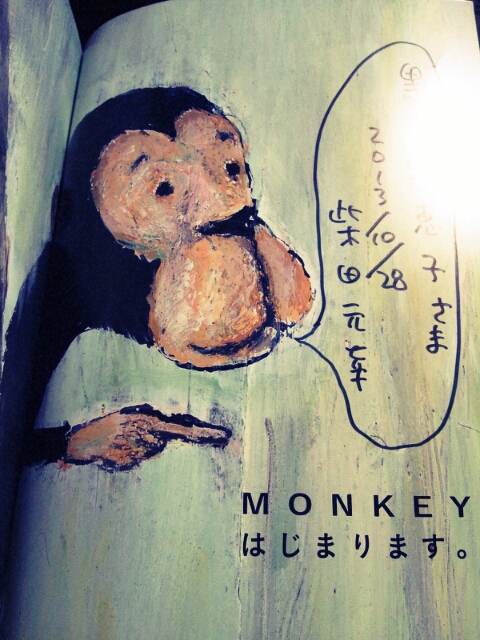 恵子さま
2013/10/28
柴田元幸
MONKEY
はじまります。